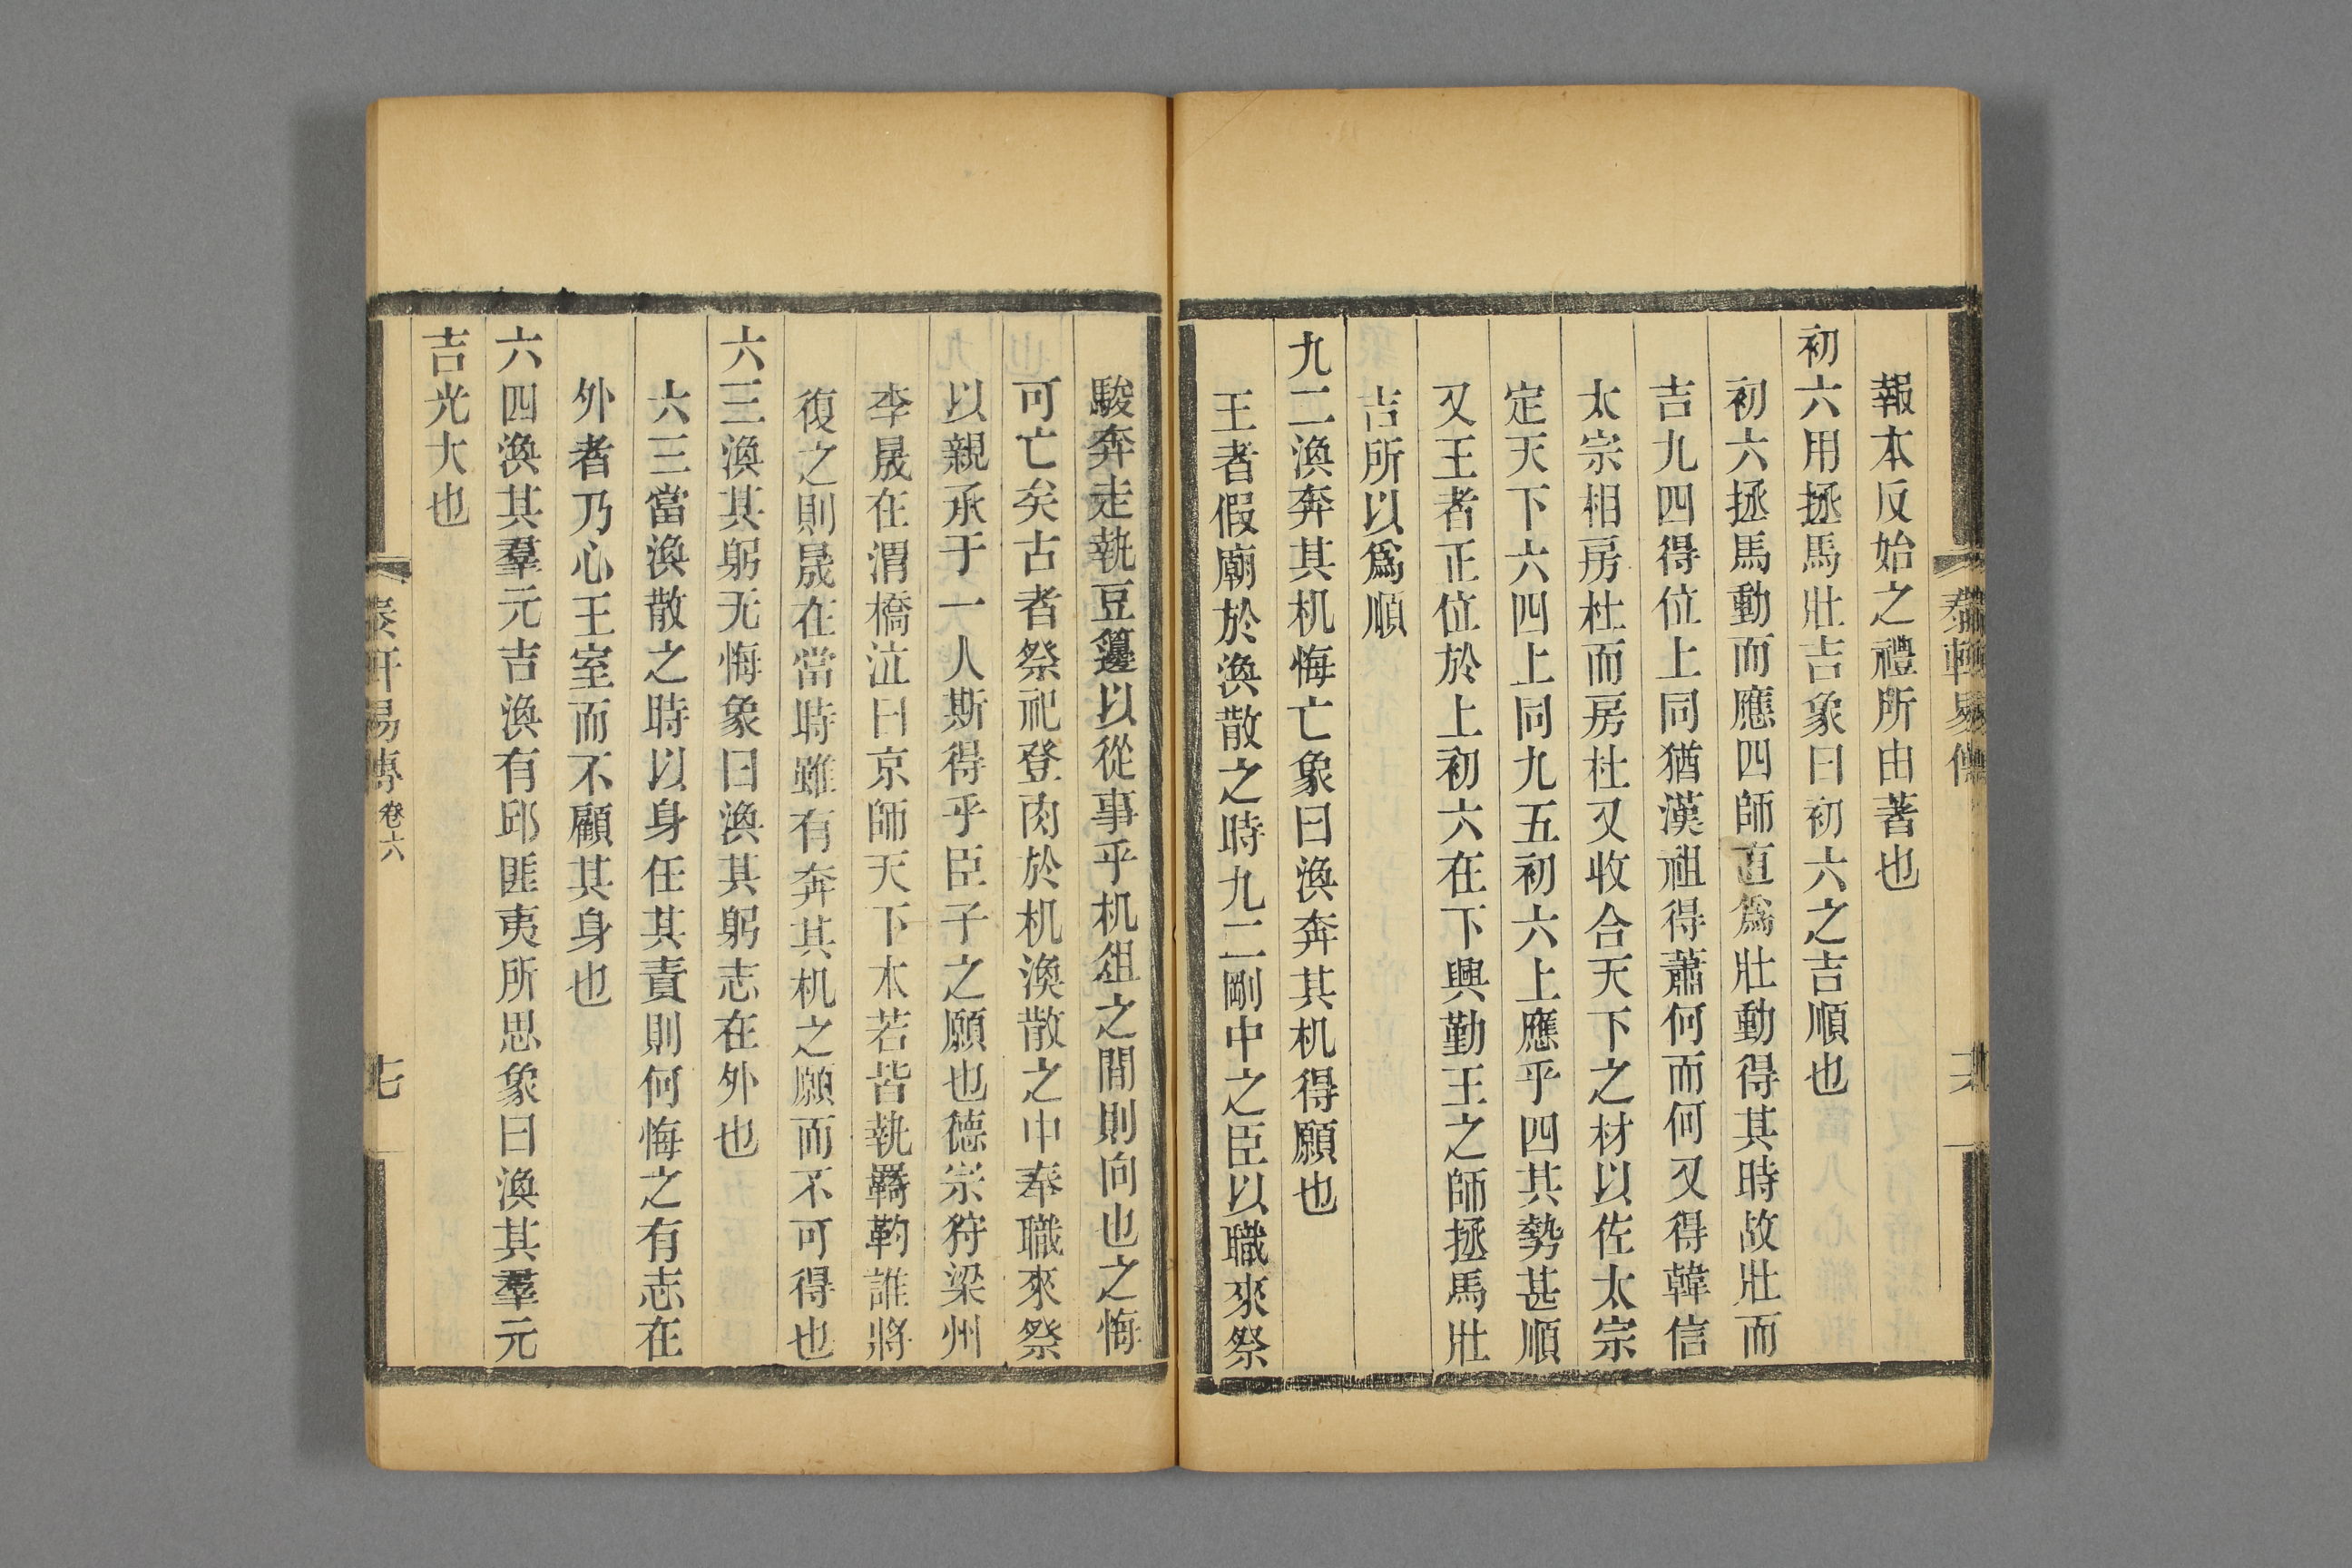 泰軒易傳
報本反始之禮所由著也
初六用拯馬壯吉象曰初六之吉順也
初六拯馬動而應四師直爲壯動得其時故壯而
吉九四得位上同猶漢祖得蕭何而何又得韓信
太宗相房杜而房杜又收合天下之材以佐太宗
定天下六四上同九五初六上應乎四其勢甚順
又王者正位於上初六在下興勤王之師拯馬壯
吉所以爲順
九二渙奔其机悔亡象曰渙奔其机得願也
王者假廟於渙散之時九二剛中之臣以職來祭
駿奔走執豆籩以從事乎机俎之間則向也之悔
可亡矣古者祭祀登肉於机渙散之中奉職來祭
以親承于一人斯得乎臣子之願也德宗狩梁州
李晟在渭橋泣曰京師天下本若皆執羈靮誰將
復之則晟在當時雖有奔其机之願而不可得也
六三渙其躬无悔象曰渙其躬志在外也
六三當渙散之時以身任其責則何悔之有志在
外者乃心王室而不顧其身也
六四渙其羣元吉渙有邱匪夷所思象曰渙其羣元
吉光大也
泰軒易傳 卷六 十七